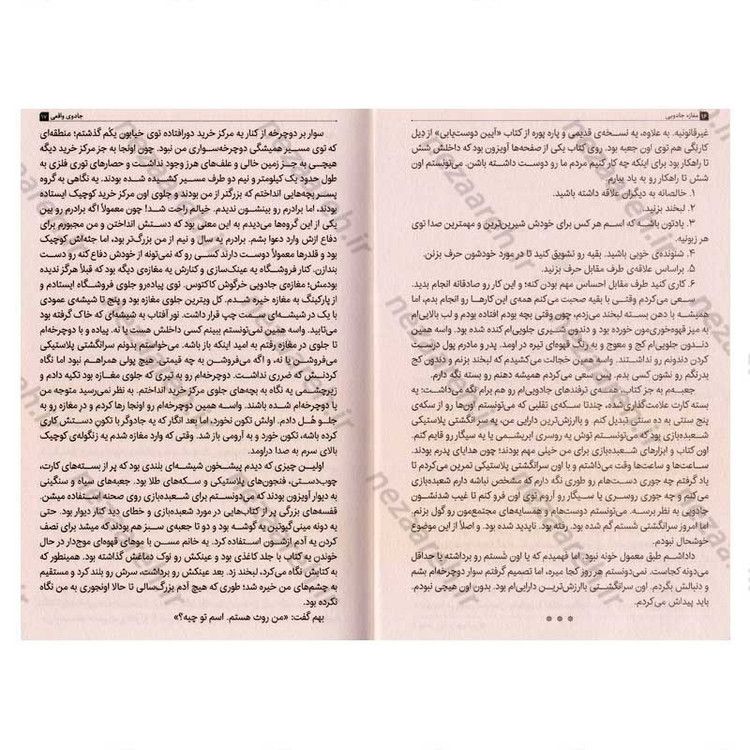 ۱۶ مغازه جادویی
غیرقانونیه. به علاوه، یه نسخه‌ی قدیمی و پاره پوره از کتاب «آیین دوست‌یابی» از دیل
کارنگی هم توی اون جعبه بود. روی کتاب یکی از صفحه‌ها آویزون بود که داخلش شش
تا راهکار بود برای اینکه چه کار کنیم مردم ما رو دوست داشته باشن. می‌تونستم اون
شش تا راهکار رو به یاد بیارم.
۱. خالصانه به دیگران علاقه داشته باشید.
۲. لبخند بزنید.
۳. یادتون باشه که اسم هر کس برای خودش شیرین‌ترین و مهمترین صدا توی
هر زبونیه.
۴. شنونده‌ی خوبی باشید. بقیه رو تشویق کنید تا در مورد خودشون حرف بزنن.
۵. براساس علاقه‌ی طرف مقابل حرف بزنید.
۶. کاری کنید طرف مقابل احساس مهم بودن کنه؛ و این کار رو صادقانه انجام بدید.
سعی می‌کردم وقتی با بقیه صحبت می‌کنم همه‌ی این کارهـا رو انجام بدم، اما
همیشه با دهن بسته لبخند می‌زدم، چون وقتی بچه بودم افتاده بودم و لب بالایی‌ام
به میز قهوه‌خوری‌مون خورده بود و دندون شیری جلویی‌ام کنده شده بود. واسه همین
دندون جلویی‌ام کج و معوج و به رنگ قهوه‌ای تیره در اومد. پدر و مادرم پول درست
کردن دندونم رو نداشتند. واسه همین خجالت می‌کشیدم که لبخند بزنم و دندون کج
بدرنگم رو نشون کسی بدم. پس سعی می‌کردم همیشه دهنم رو بسته نگه دارم.
جعبه‌ام به جز کتاب، همه‌ی ترفندهای جادویی‌ام رو هم برام نگه می‌داشت: یه
بسته کارت علامت‌گذاری‌شده، چندتا سکه‌ی تقلبی که می‌تونستم اون‌ها رو از سکه‌ی
پنج سنتی به ده سنتی تبدیل کنم و باارزش‌ترین دارایی من، یه سرانگشتی پلاستیکی
شعبده‌بازی بود که می‌تونستم توش یه روسری ابریشمی یا یه سیگار رو قایم کنم.
اون کتاب و ابزارهای شعبده‌بازی برای من خیلی مهم بودند؛ چون هدایای پدرم بودند.
ساعت‌ها و ساعت‌ها وقت می‌ذاشتم و با اون سرانگشتی پلاستیکی تمرین می‌کردم تا
یاد گرفتم چه جوری دست‌هام رو طوری نگه دارم که مشخص نباشه دارم شعبده‌بازی
می‌کنم و چه جوری روسری یا سیگار رو آروم توی اون فرو کنم تا غیب شدنشون
جادویی به نظر برسه. می‌تونستم دوست‌هام و همسایه‌های مجتمع‌مون رو گول بزنم.
اما امروز سرانگشتی شستم گم شده بود. رفته بود. ناپدید شده بود. و اصلاً از این موضوع
خوشحال نبودم.
داداشم طبق معمول خونه نبود. اما فهمیدم که یا اون شستم رو برداشته یا حداقل
می‌دونه کجاست. نمی‌دونستم هر روز کجا میره، اما تصمیم گرفتم سوار دوچرخه‌ام بشم
و دنبالش بگردم. اون سرانگشتی باارزش‌ترین دارایی‌ام بود. بدون اون هیچی نبودم.
باید پیداش می‌کردم.
* * *
جادوی واقعی ۱۷
سوار بر دوچرخه از کنار یه مرکز خرید دورافتاده توی خیابون یکُم گذشتم؛ منطقه‌ای
که توی مسـیر همیشگی دوچرخه‌سواری من نبود. چون اونجا به جز مرکز خرید دیگه
هیچی به جز زمین خالی و علف‌های هرز وجود نداشت و حصارهای توری فلزی به
طول حدود یک کیلومتر و نیم دو طرف مسیر کشـیده شده بودند. یه نگاهی به گروه
پسر بچه‌هایی انداختم که بزرگتر از من بودند و جلوی اون مرکز خرید کوچیک ایستاده
بودند، اما برادرم رو بینشون ندیدم. خیالم راحت شد! چون معمولاً اگه برادرم رو بین
یکی از این گروه‌ها می‌دیدم به این معنی بود که دستش انداختن و من مجبورم برای
دفاع ازش وارد دعوا بشم. برادرم یه سال و نیم از من بزرگ‌تر بود، اما جثه‌اش کوچیک
بود و قلدرها معمولاً دوست دارند کسی رو که نمی‌تونه از خودش دفاع کنه رو دست
بندازن. کنار فروشگاه یه عینک‌سازی و کنارش یه مغازه‌ی دیگه بود که قبلاً هرگز ندیده
بودمش؛ مغازه‌ی جادویی خرگوش کاکتوس. توی پیاده‌رو جلوی فروشگاه ایستادم و
از پارکینگ به مغازه خیره شـدم. کل ویترین جلوی مغازه بود و پنج تا شیشه‌ی عمودی
با یک در شیشه‌ای سمت چپ قرار داشت. نور آفتاب به شیشه‌ای که خاک گرفته بود
می‌تابید. واسه همین نمی‌تونستم ببینم کسی داخلش هست یا نه. پیاده و با دوچرخه‌ام
تا جلوی در مغازه رفتم به امید اینکه باز باشه. می‌خواستم بدونم سرانگشتی پلاستیکی
می‌فروشن یا نه، و اگه می‌فروشن به چه قیمتی؟ هیچ پولی همراهم نبود اما نگاه
کردنـش که ضرری نداشـت. دوچرخه‌ام رو به تیری که جلوی مغازه بود تکیه دادم و
زیرچشـمی یه نگاه به بچه‌های جلوی مرکز خرید انداختم. به نظر نمی‌رسید متوجه من
یا دوچرخه‌ام شده باشند. واسه همین دوچرخه‌ام رو اونجا رها کردم و درِ مغازه رو به
جلـو هُـل دادم. اولش تکون نخورد، اما بعد انگار که یه جادوگر با تکون دسـتش کاری
کرده باشه، تکون خورد و به آرومی باز شد. وقتی که وارد مغازه شدم یه زنگوله‌ی کوچیک
بالای سرم به صدا دراومد.
اولین چیزی که دیدم پیشخون شیشه‌ای بلندی بود که پر از بسته‌های کارت،
چوب‌دستی، فنجون‌های پلاستیکی و سکه‌های طلا بود. جعبه‌های سیاه و سنگینی
به دیوار آویزون بودند که می‌دونستم برای شعبده‌بازی روی صحنه ازش استفاده میشن.
قفسه‌های بزرگی پر از کتاب‌هایی در مورد شعبده‌بازی و خطای دید کنار دیوار بود. حتی
یه دونه مینی‌گیوتین یه گوشه بود و دو تا جعبه‌ی سبز هم بودند که میشد برای نصف
کردن یه آدم ازشون استفاده کرد. یه خانم مسن با موهای قهوه‌ای موج‌دار در حال
خوندن یه کتاب با جلد کاغذی بود و عینکش رو نوک دماغش گذاشته بود. همینطور که
به کتابش نگاه می‌کرد، لبخند زد. بعد عینکش رو برداشت، سرش رو بلند کرد و مستقیم
به چشم‌های من خیره شد؛ طوری که هیچ آدم بزرگ‌سالی تا حالا اونجوری به من نگاه
نکرده بود.
بهم گفت: «من روت هستم. اسم تو چیه؟»
nezaareh.ir